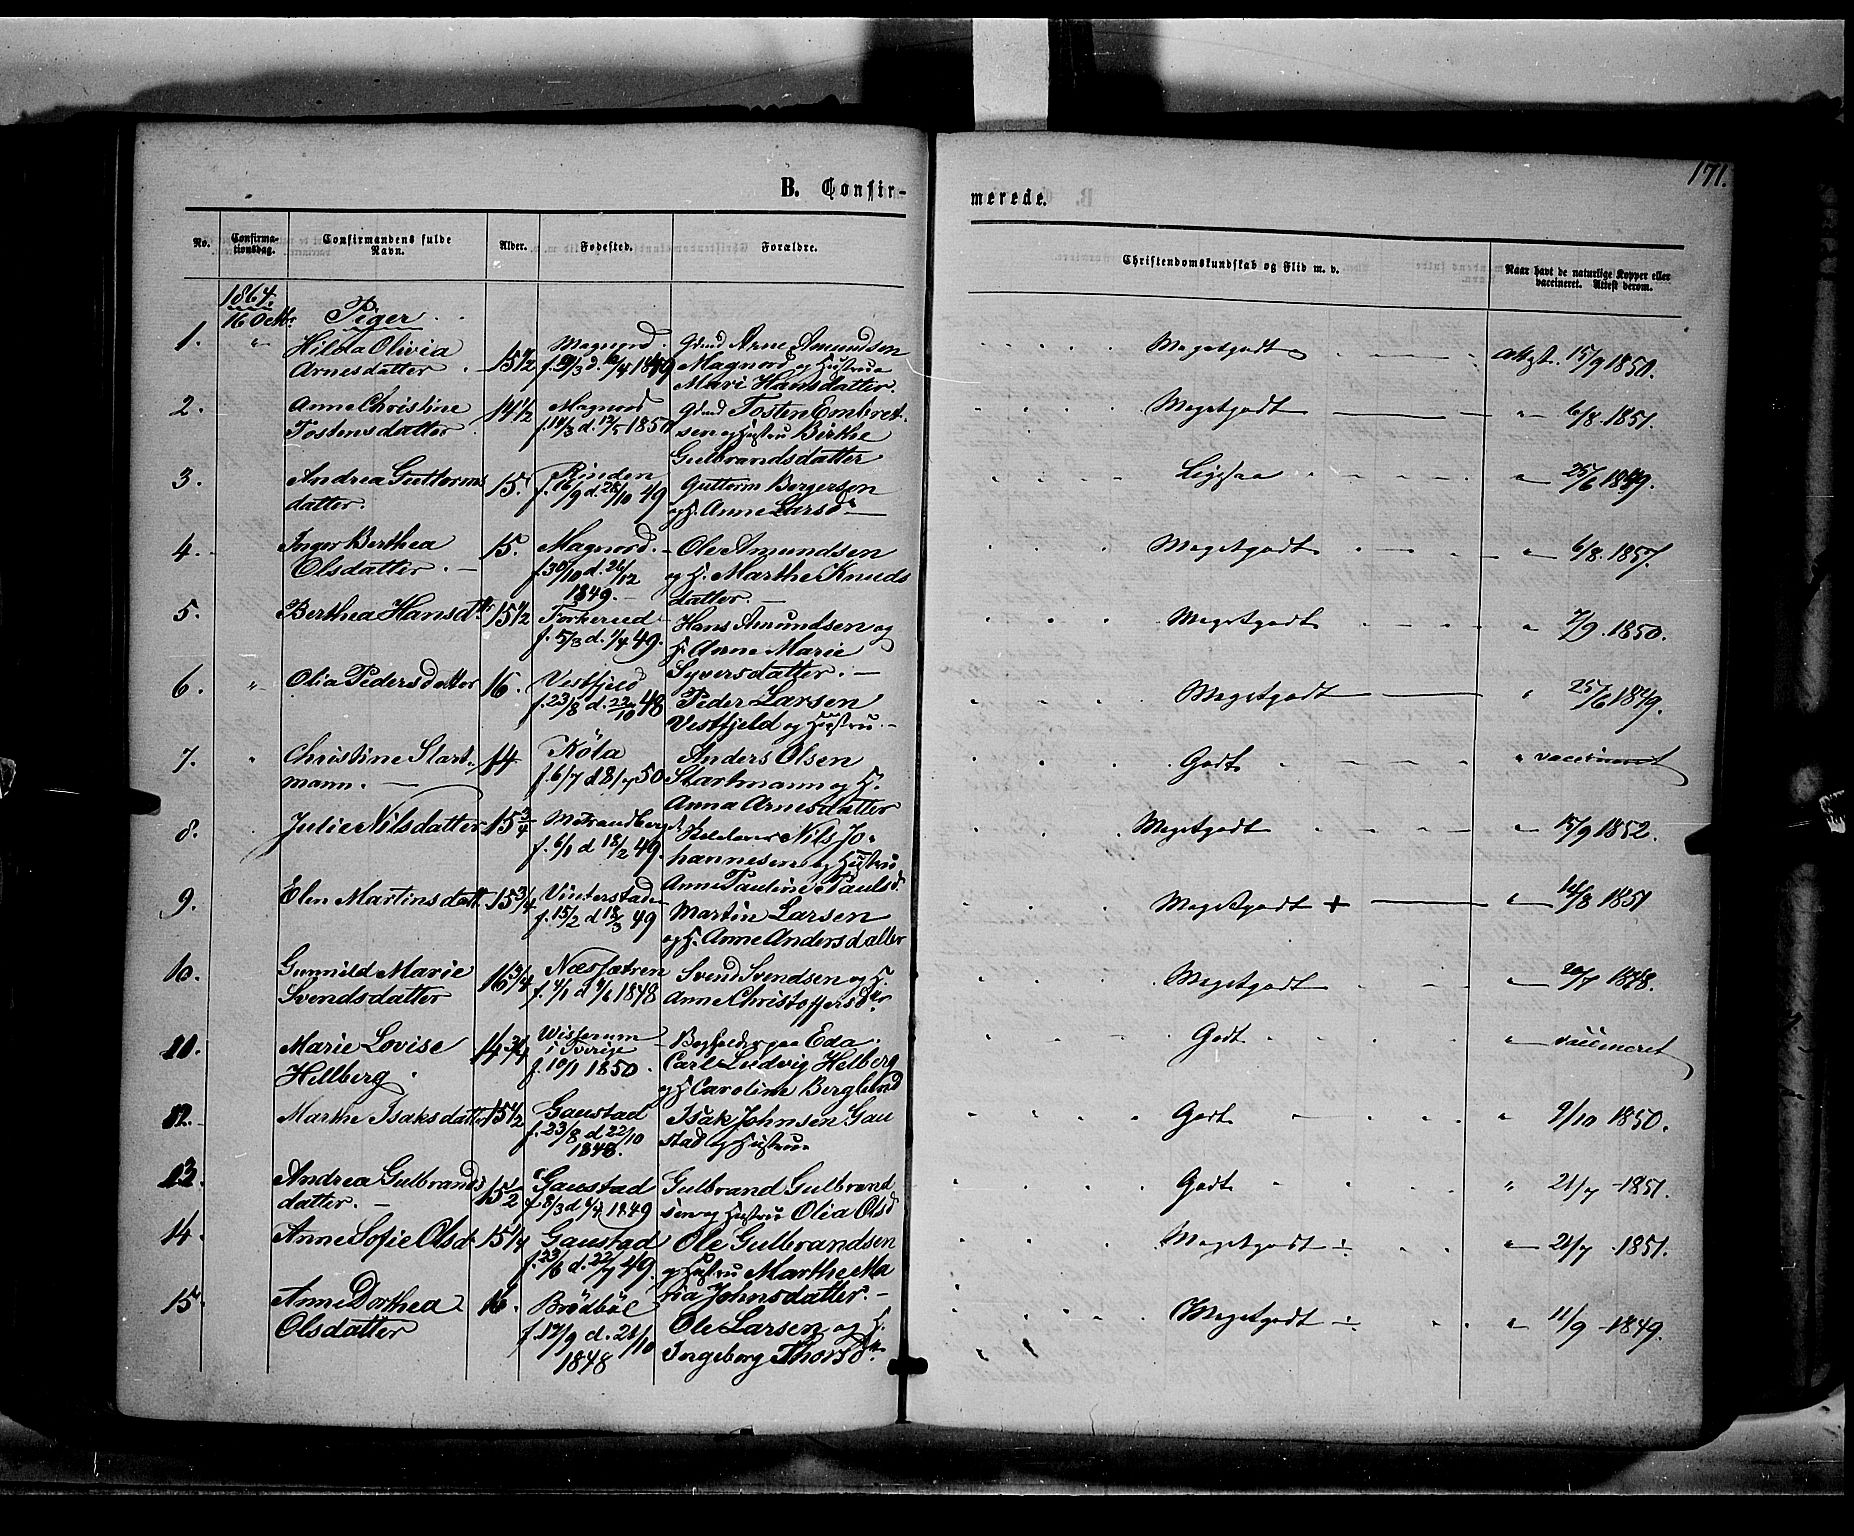 171.
B. Confir-
merede.
No.
Confirma-
tionsdag.
Confirmandens fulde
Navn.
Alder.
Fødested.
Forældre.
Christendomskundskab og Flid m. v.
Naar havt de naturlige Kopper eller
vaccineret. Attest derom.
1864.
16 Octbr. Piger
1. " Hilda Olivia
Arnesdatter 15 1/2 Magnord.
Arne Amundsen
Magnord og Hustrue
Mari Hansdatter.
Megetgodt attest. 15/9 1850.
2. Anne Christine
Tostensdatter 14 1/2 Magnord
f. 14/3 d. 12/5 1850
Tosten Embret-
sen og Hustru Birthe
Gulbrandsdatter
Megetgodt " 6/8. 1851.
3. Andrea Guttorms
datter. 15. Rinden
f. 16/9 d. 28/10 49
Guttorm Bergersen
og H. Anne Larsdr
Ligesaa " 25/6 1849.
4. Inger Berthea
Olsdatter. 15. Magnord.
f. 30/10 d. 26/12
1849.
Ole Amundsen
og H. Marthe Knuds
datter.
Megetgodt " 6/8. 1857.
5. Berthea Hansdtr 15 1/2 Torkerud
f. 5/3 d. 1/4 49.
Hans Amundsen og
H. Anne Marie
Syversdatter.
Megetgodt " 7/9. 1850.
6. " Olia Pedersdatter 16. Vestfjeld
f. 23/8 d. 22/10 48
Peder Larsen
Vestfjeld og Hustru.
Megetgodt " 25/6 1849.
7. " Christine Start-
mann. 14 Köla
f. 6/7 d 8/7 50
Anders Olsen
Startmann og H.
Anna Arnesdatter
Godt " vaccineret
8. Julie Nilsdatter 15 3/4
f. 6/1 d 18/2 49.
Nils Jo-
hannesen og Hustru
Anne Pauline Paulsd.
Megetgodt " 15/9 1852.
9. Elen Martinsdatt. 15 3/4 Vinterstad
f. 15/2 d 18/3 49
Martin Larsen
og H. Anne Andersdatter
Megetgodt + " 14/8 1851
10. Gunnild Marie
Svendsdatter 16 3/4 Næssætren
1848
Svend Svendsen og H.
Anne Christoffersdtr.
Megetgodt " 20/7 1848.
11. Marie Lovise
Hellberg. 14 3/4
i Sverige
f. 10/1 1850.
Bogholder paa Eda
Carl Ludvig Helberg
og H. Caroline Berglund
Godt " vaccineret
12. Marthe Isaksdatter 15 1/2 Gaustad
f. 23/8 d 22/10
1848.
Isak Johnsen Gau
stad og Hustrue
Godt " 9/10 1850.
13. Andrea Gulbrands
datter. 15 1/2 Gaustad
f. 8/3 d 1849
Gulbrand Gulbrand
sen og Hustru Olia Olsd
Godt " 21/7 1851.
14. Anne Sofie Olsd. 15 1/4 Gaustad
f. 23/6 d. 22/7 49.
Ole Gulbrandsen
og Hustru Marthe Ma
ria Johnsdatter.
Megetgodt ÷ " 21/7 1851.
15. Anne Dorthea
Olsdatter 16. Brödböl
f. 17/9 d. 21/10
1848
Ole Larsen og H.
Ingeborg Thorsdtr.
Megetgodt ÷ " 11/9 1849.